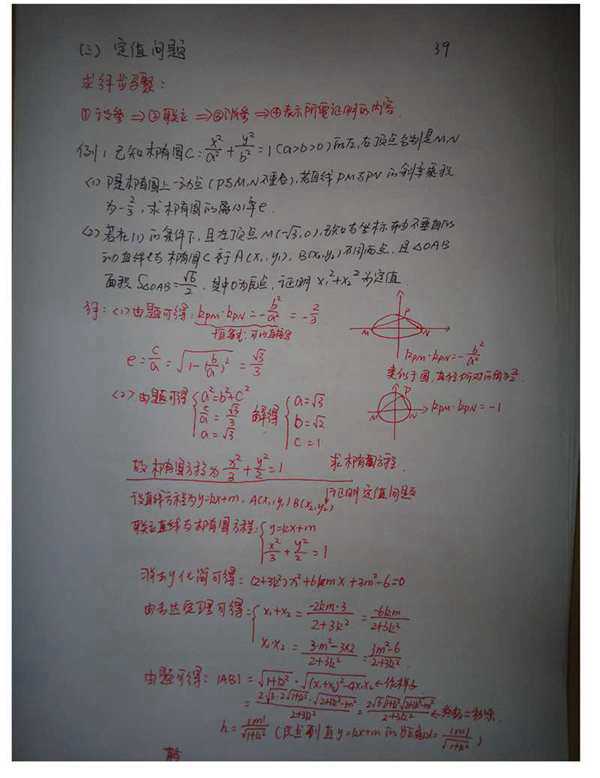 (三) 定值问题
39
求解步骤:
①设参 ⇒ ②联立 ⇒ ③消参 ⇒ ④表示所需证明的内容.
例1. 已知椭圆C: x²/a² + y²/b² = 1 (a>b>0)的左,右顶点分别是M,N
(1) P是椭圆上一动点 (P与M,N不重合), 若直线PM与PN的斜率乘积
为-2/3, 求椭圆的离心率e.
(2) 若在(1)的条件下, 且左顶点M(-√3,0), 与坐标轴不垂直的
直线l与椭圆C交于A(x₁,y₁), B(x₂,y₂)不同两点, 且△OAB
面积S△OAB=√6/2, 其中O为原点, 证明x₁²+x₂²为定值.
解: (1) 由题可得: kPM·kPN = -b²/a² = -2/3
e = c/a = √(1-(b/a)²) = √3/3
P
M
N
kPM·kPN = -b²/a²
类似于圆, 直径所对的角
P
kPM·kPN = -1
(2) 由题可得 { a²=b²+c² c/a = √3/3 a=√3 解得 { a=√3 b=√2 c=1
故椭圆方程为 x²/3 + y²/2 = 1
求椭圆方程.
设直线方程为y=kx+m, A(x₁,y₁) B(x₂,y₂)
证明定值问题
联立直线与椭圆方程: { y=kx+m x²/3 + y²/2 = 1
消去y化简可得: (2+3k²)x²+6kmx+3m²-6=0
由韦达定理可得: { x₁+x₂ = -2km·3/2+3k² = -6km/2+3k²
x₁·x₂ = 3·m²-3×2/2+3k² = 3m²-6/2+3k²
由题可得: |AB| = √1+k² · √(x₁+x₂)²-4x₁x₂
= 2√3·2√1+k²·√2+3k²-m²/2+3k² = 2√6√1+k²√2+3k²-m²/2+3k²
h = |m|/√1+k² (原点到直y=kx+m的距离d=|m|/√1+k²)